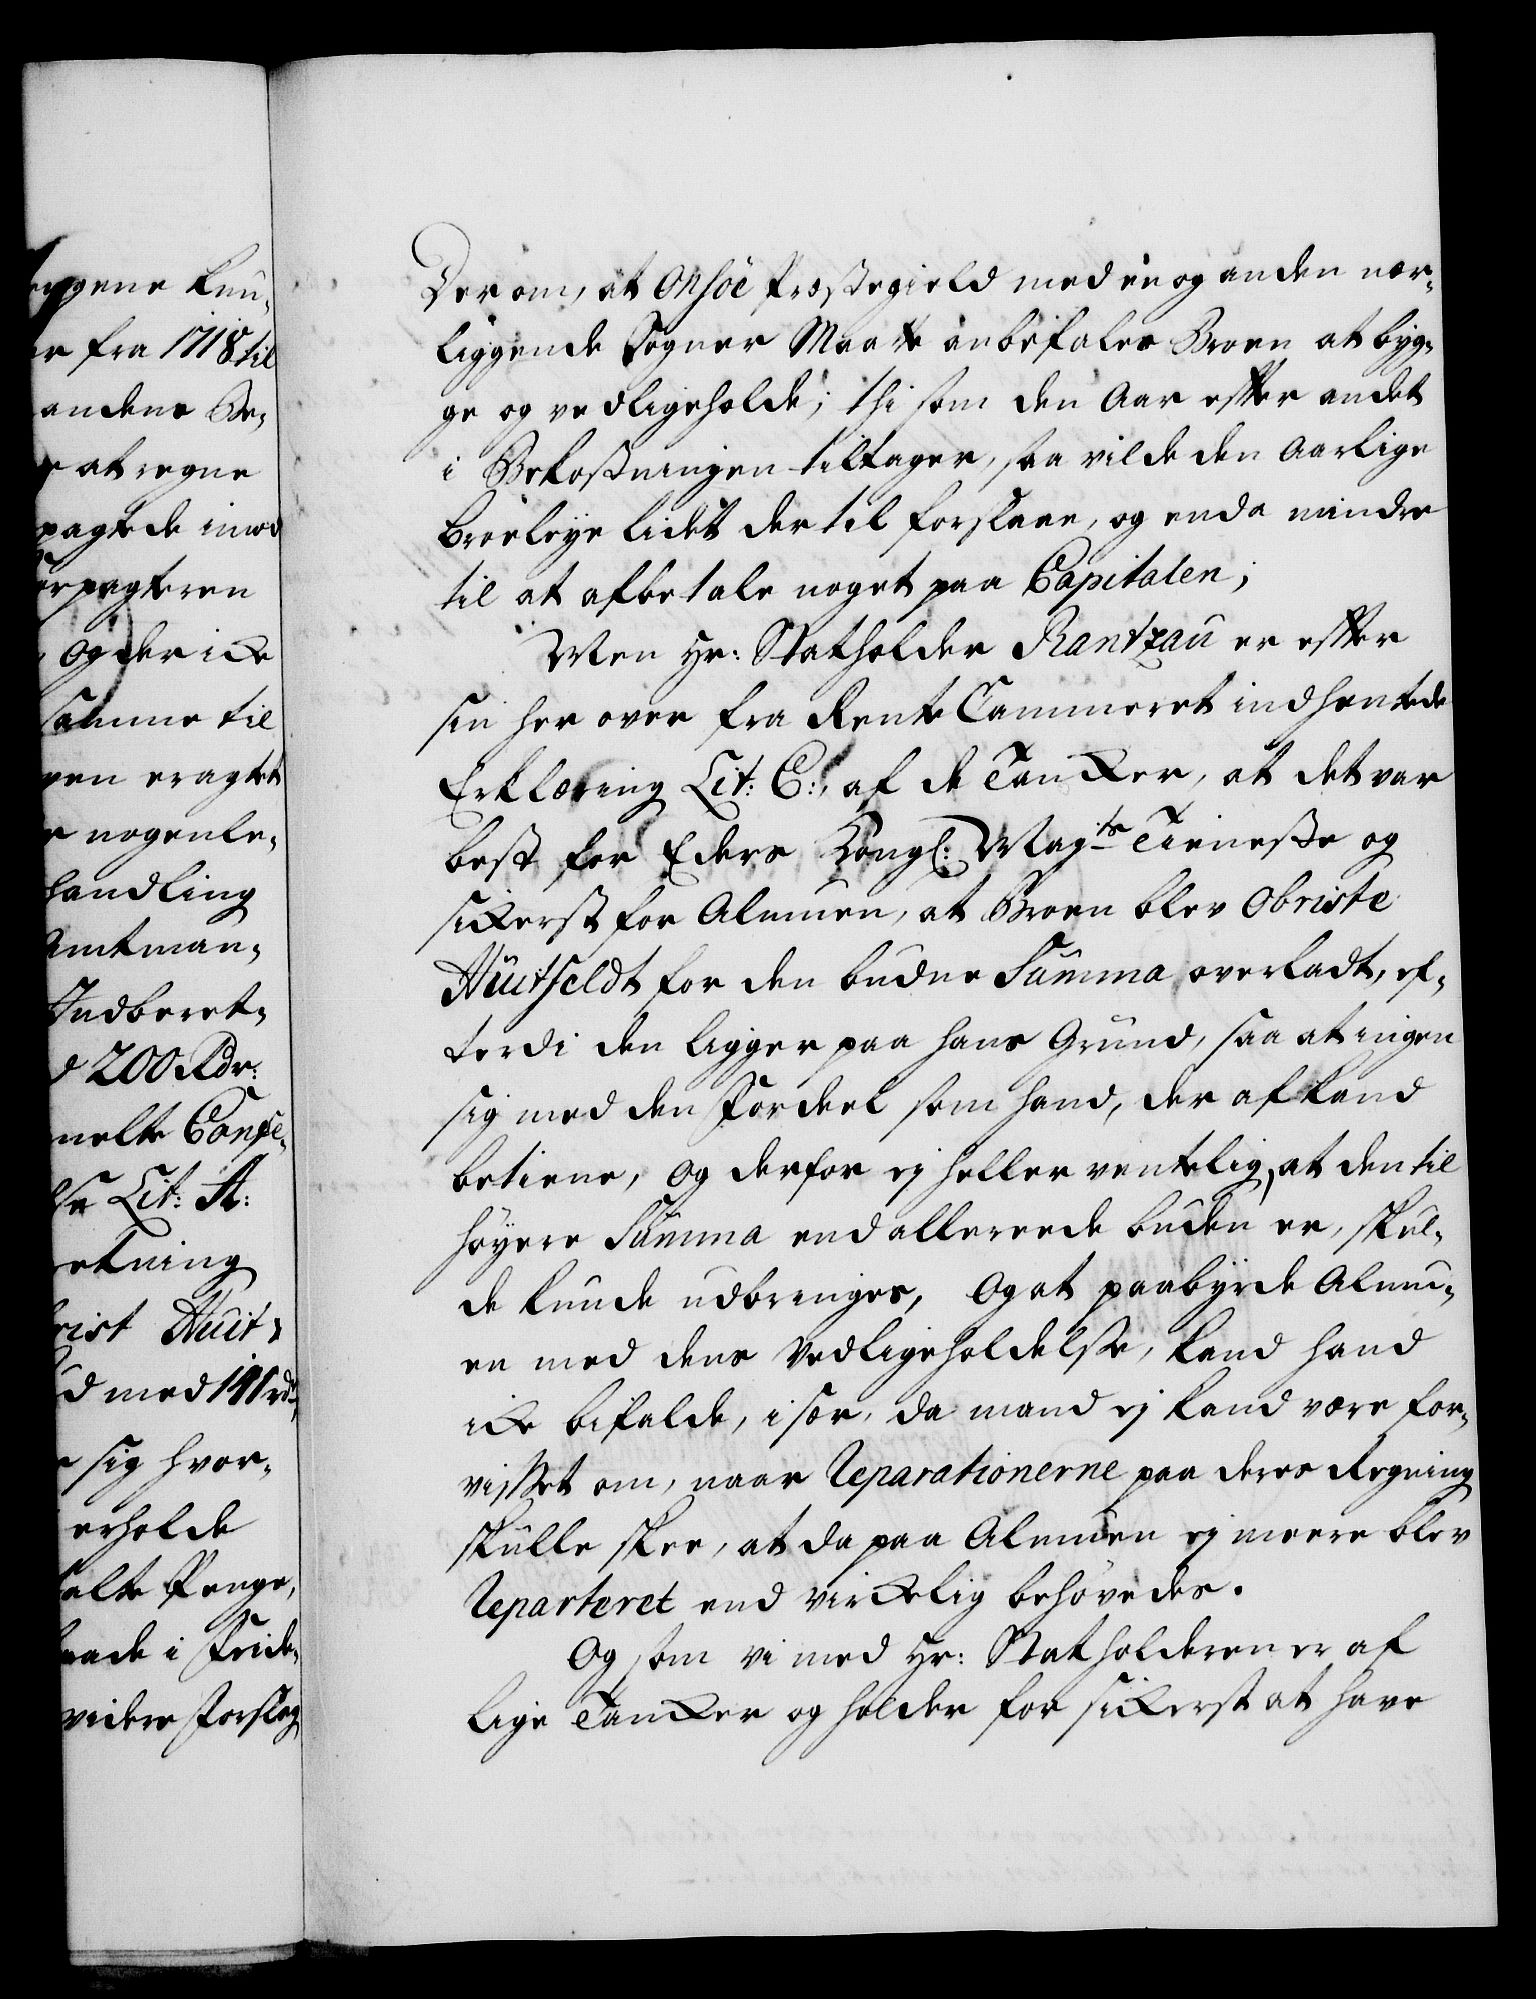 ergene kun-
er fra 1718 til
andens Be-
r at regne
pagtede imod
orpagteren
og der icke
samme til
ven eragtet
r nogenle-
handling
Amtman-
Indberet-
d 200 Rdr:
melte Confe-
lse Lit: A:
retning
rist Huit-
ud med 191 rd
sig hvor-
erholde
talte Penge,
raade i Fride-
videre Forslag
Derom, at Onsöe Præstegield med en og anden nær-
liggende Sogner Maatte anbefales Broen at byg-
ge og vedligeholde; thi som den Aar efter andet
i Bekostningen tiltager, saa vilde den Aarlige
Broeleye lidet der til forslaae, og enda mindre
til at afbetale noget paa Capitalen;
Men Hr: Statholder Rantzau er efter
sin her over fra Rente Cammeret indhentede
Erklæring Lit: C:, af de Tancker, at det var
best for Eders Kongl: Mayts Tieneste og
sickerst for Almuen, at Broen blev Obriste
Huitfeldt for den budne Summa overladt, ef-
terdi den ligger paa hans Grund, saa at ingen
sig med den Fordeel som hand, der af kand
betiene, og derfor ej heller ventelig, at den til
höyere Summa end allereede buden er, skul-
de kunde udbringes, Og at paabyrde Almu-
en med dens Vedligeholdelse, kand hand
icke bifalde, i sær, da mand ej kand være for-
visset om, naar Reparationerne paa deres Regning
skulle skee, at da paa Almuen ej meere blev
Reparteret end virckelig behövedes.
Og som vi med Hr: Statholderen er af
lige Tancker og holder for sickerst at have